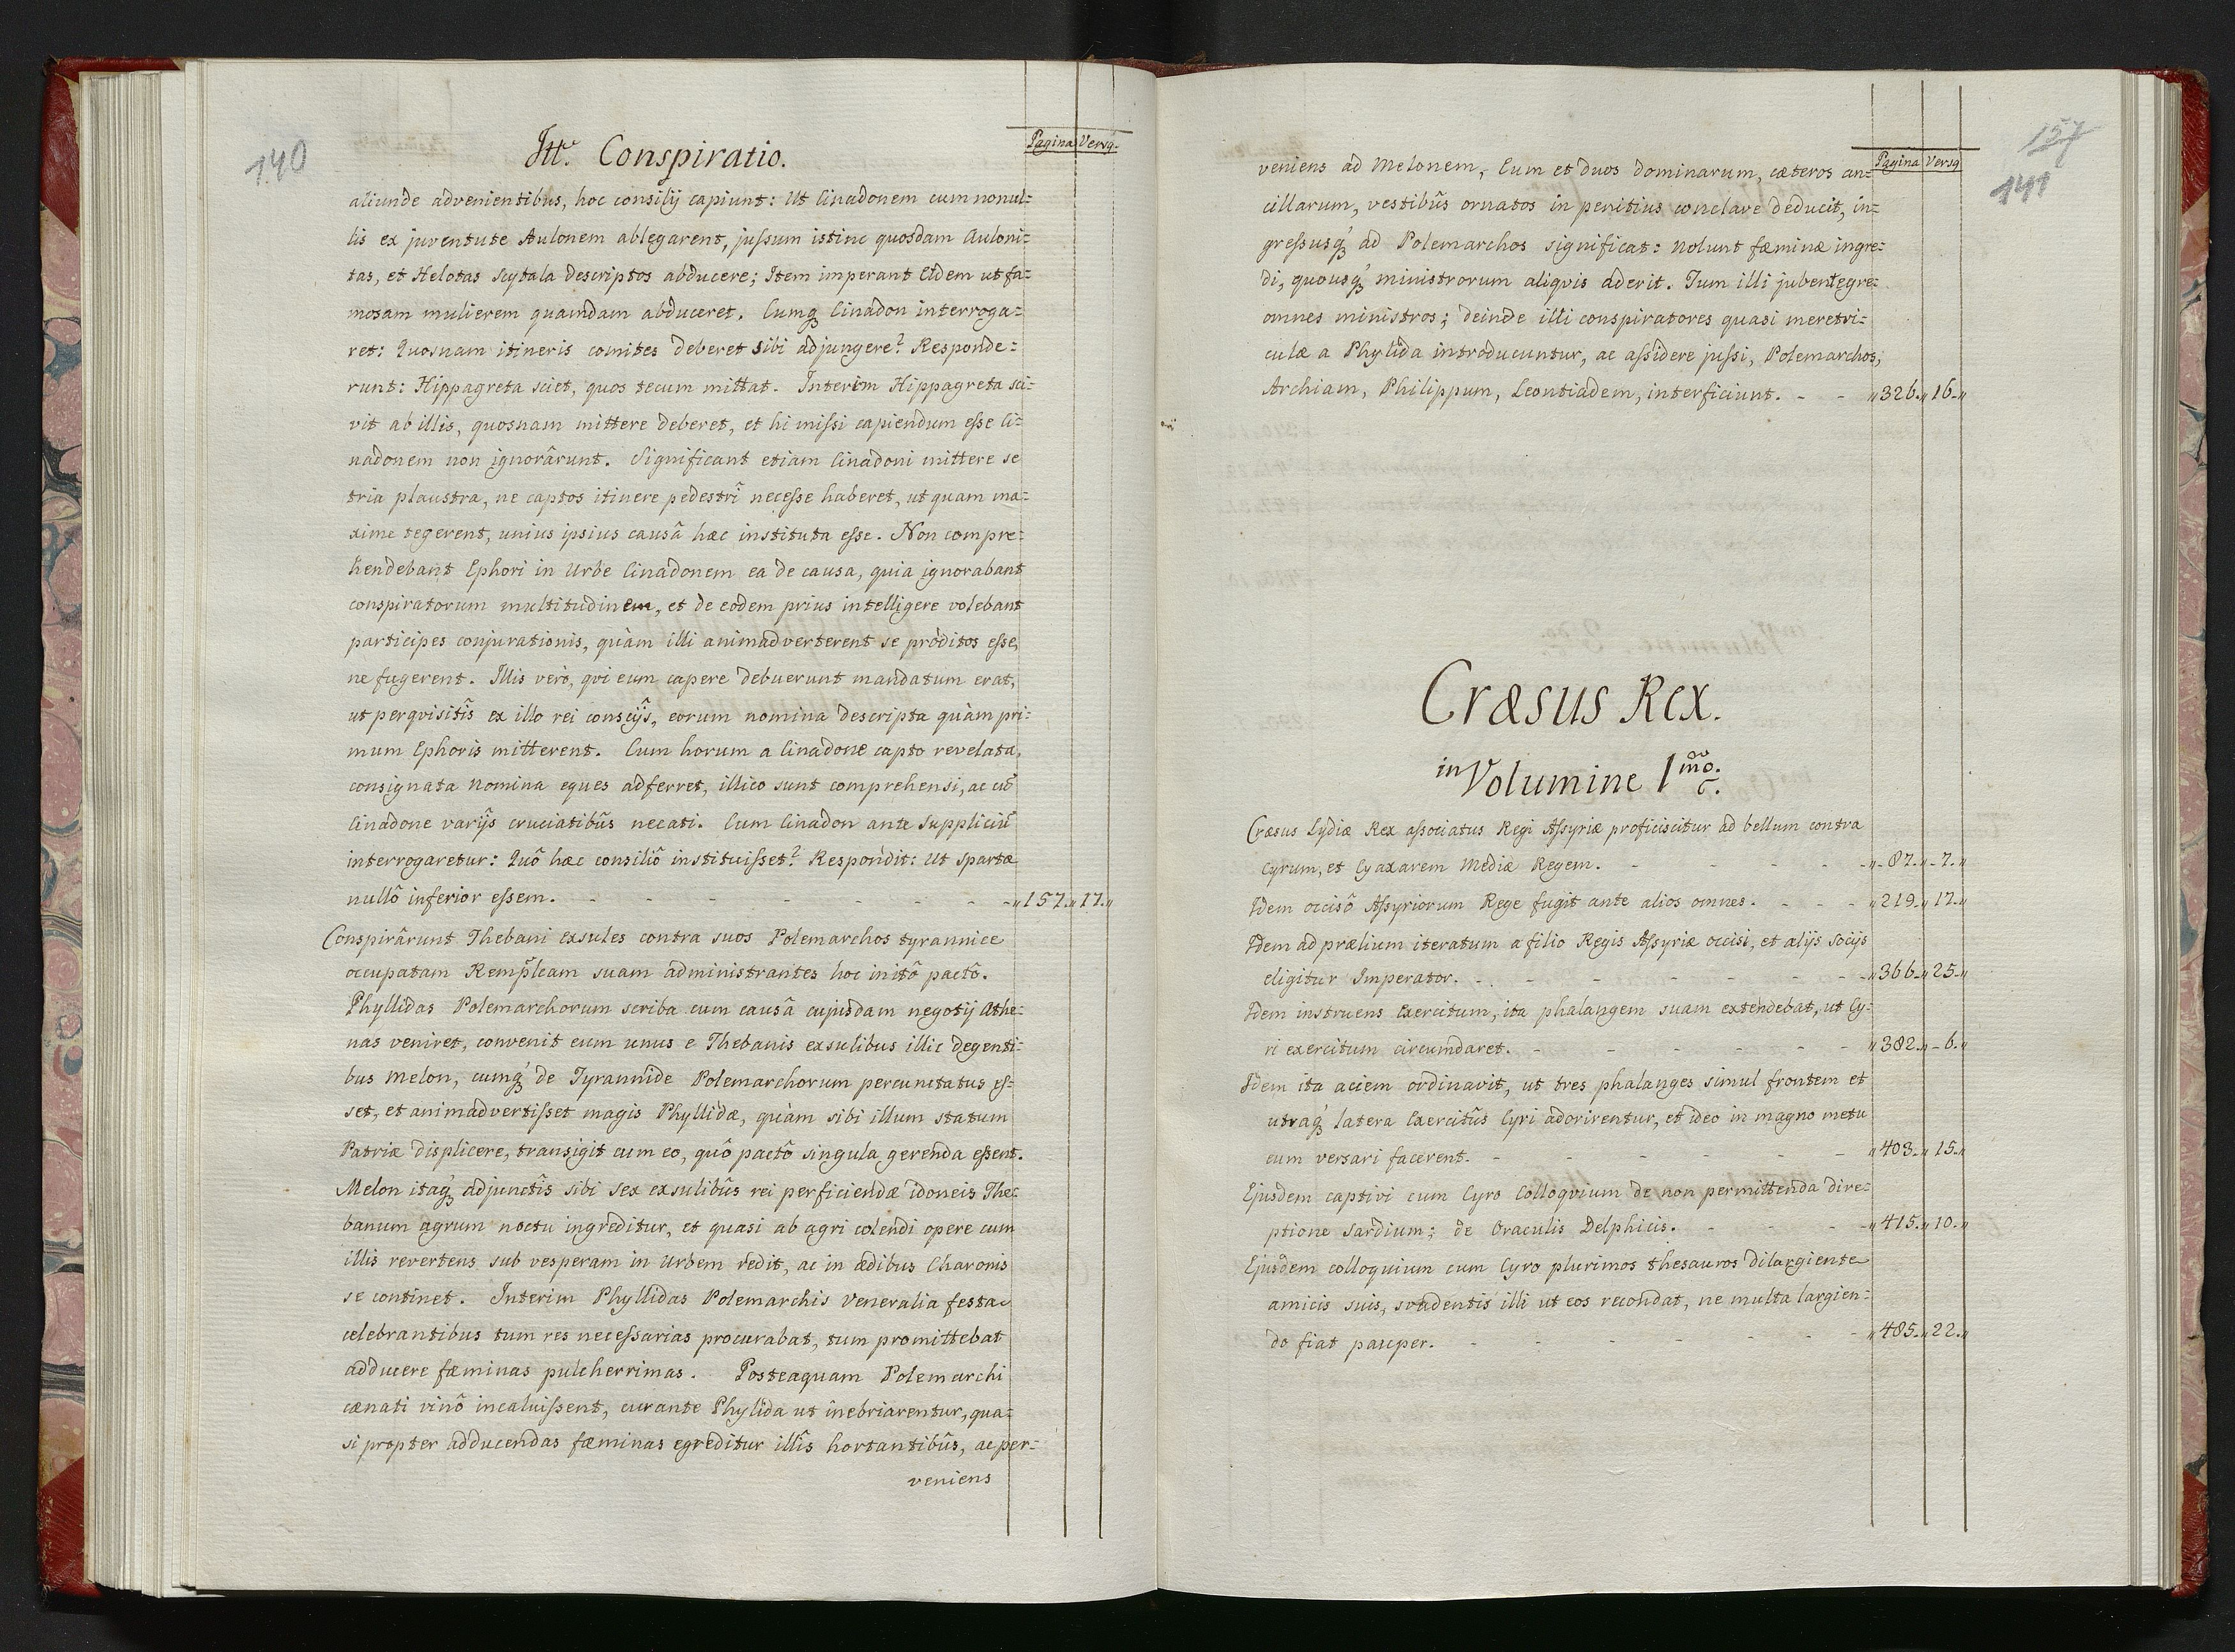 140
Itt. Conspiratio.
Pagina Versq.
aliunde advenientibus, hoc consilij capiunt: Ut Cinadonem cum nonul=
lis ex juventute Aulonem ablegarent, jussum istinc quosdam Auloni=
tas, et Helotas Scytala descriptos abducere; Item imperant Eidem ut fa=
mosam mulierem quamdam abduceret. Cumq3 Cinadon interroga=
ret: Quosnam itineris comites deberet sibi adjungere? Responde=
runt: Hippagreta sciet, quos tecum mittat. Interim Hippagreta sci=
vit ab illis, quosnam mittere deberet, et hi missi capiendum esse Ci=
nadonem non ignorârunt. Significant etiam Cinadoni mittere se
tria plaustra, ne captos itinere pedestri necesse haberet, ut quam ma=
xime tegerent, unius ipsius causâ hæc instituta esse. Non compre=
hendebant Ephori in Urbe Cinadonem ea de causa, quia ignorabant
conspiratorum multitudinem, et de eodem prius intelligere volebant
participes conjurationis, quàm illi animadverterent se proditos esse,
ne fugerent. Illis verò, qvi eum capere debuerunt mandatum erat,
ut perqvisitîs ex illo rei conscijs, eorum nomina descripta quàm pri=
mum Ephoris mitterent. Cum horum a Cinadone capto revelata,
consignata nomina eques adferret, illico sunt comprehensi, ac cũ
Cinadone varijs cruciatibûs necati. Cum Cinadon ante Suppliciũ
interrogaretur: Quô hæc consiliô instituisset? Respondit: Ut Spartæ
nullô inferior essem. - - - - - - - -„157.„17.„
Conspirârunt Thebani Exsules contra suos Polemarchos tyrannice
occupatam Remp̃lcam suam administrantes hoc initô pactô.
Phyllidas Polemarchorum scriba cum causâ cujusdam negotij Athe=
nas veniret, convenit eum unus e Thebanis exsulibus illic degenti=
bus Melon, cumq3 de Tyrannide Polemarchorum percunctatus es=
set, et animadvertisset magis Phyllidæ, quàm sibi illum statum
Patriæ displicere, transigit cum eo, quô pactô singula gerenda essent.
Melon itaq3 adjunctîs sibi sex exsulibûs rei perficiendæ idoneis The=
banum agrum noctu ingreditur, et quasi ab agri colendi opere cum
illis revertens sub vesperam in Urbem redit, ac in ædibus Charonis
se continet. Interim Phyllidas Polemarchis Veneralia festa
celebrantibus tum res necessarias procurabat, tum promittebat
adducere fæminas pulcherrimas. Posteaquam Polemarchi
cænati vinô incaluissent, curante Phylida ut inebriarentur, qua=
si propter adducendas fæminas egreditur illîs hortantibûs, ac per=
veniens
157
141
Pagina Versq
veniens ad Melonem, Eum et duos dominarum, cæteros an=
cillarum, vestibûs ornatos in penitius conclave deducit, in=
gressusq3 ad Polemarchos significat: Nolunt fæminæ ingre=
di, quousq3 ministrorum aliqvis aderit. Tum illi jubent egre=
omnes ministros; deinde illi conspiratores quasi meretri=
culæ a Phylida introducuntur, ac assidere jussi, Polemarchos,
Archiam, Philippum, Leontiadem, interficiunt. - - „326.„16.„
Cræsus Rex.
in Volumine 1mo.
Cræsus Lydiæ Rex associatus Regi Assyriæ proficiscitur ad bellum contra
Cyrum, et Cyaxarem Mediæ Regem. - - - - -„-87.„-7.„
Idem occisô Assyriorum Rege fugit ante alios omnes. - - - „219.„17.„
Idem ad prælium iteratum a filio Regis Assyriæ occisi, et alijs Socijs
eligitur Imperator. - - - - - - -„366.„25.„
Idem instruens Exercitum, ita phalangem suam extendebat, ut Cy=
ri exercitum circumdaret. - - - - - - „382.„-6.„
Idem ita aciem ordinavit, ut tres phalanges simul frontem et
utraq3 latera Exercitûs Cyri adorirentur, et ideo in magno metu
eum versari facerent. - - - - - - „403.„15.„
Ejusdem captivi cum Cyro Colloqvium de non permittenda dire=
ptione Sardium; de Oraculis Delphicis. - - - -„415.„10.„
Ejusdem colloquium cum Cyro plurimos thesauros dilargiente
amicis suis, svadentis illi ut eos recondat, ne multa largien=
do fiat pauper. - - - - - - - „485.„22.„